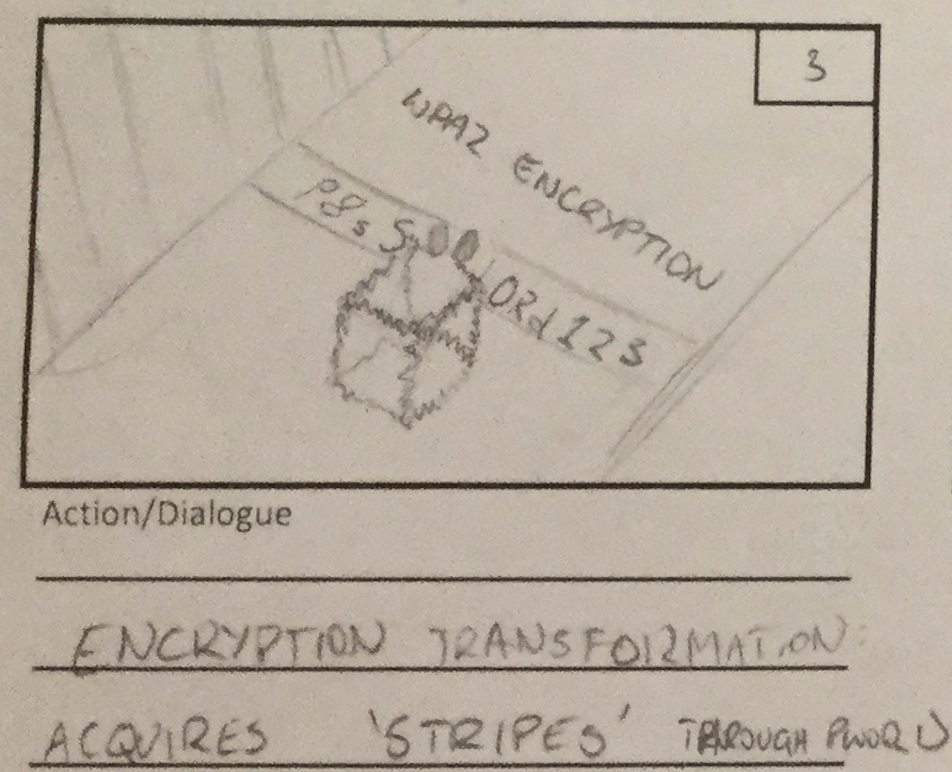 3
WPA2 ENCRYPTION
P8sS ORd123
Action/Dialogue
ENCRYPTION TRANSFORMATION:
ACQUIRES 'STRIPES' THROUGH PWORD